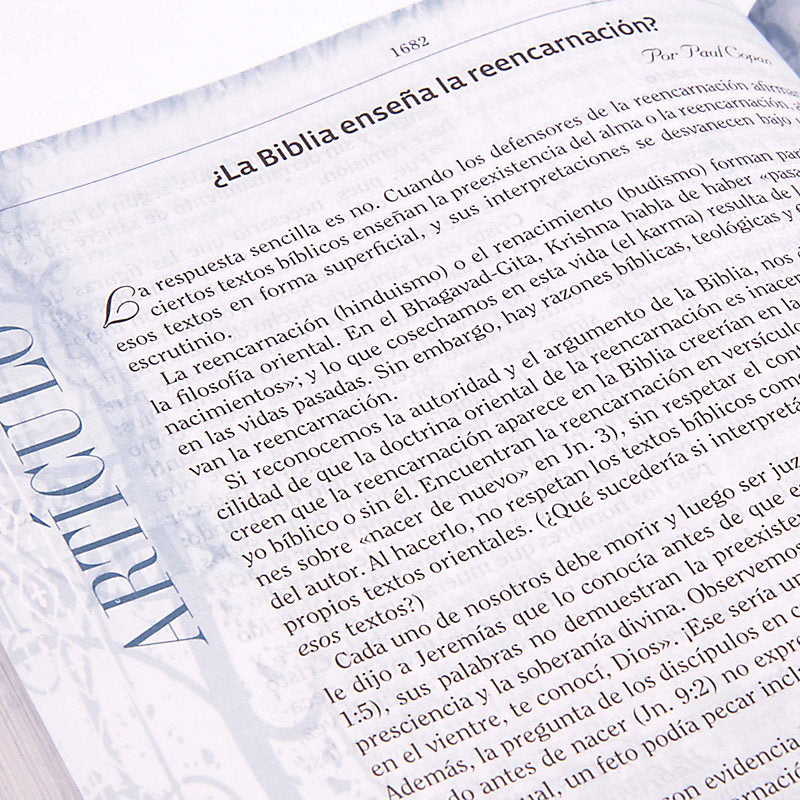 1682
¿La Biblia enseña la reencarnación?
Por Paul Copan
La respuesta sencilla es no. Cuando los defensores de la reencarnación
ciertos textos bíblicos enseñan la preexistencia del alma o la reencarnación,
esos textos en forma superficial, y sus interpretaciones se desvanecen bajo
escrutinio.
La reencarnación (hinduismo) o el renacimiento (budismo) forman
la filosofía oriental. En el Bhagavad-Gita, Krishna habla de haber
nacimientos»; y lo que cosechamos en esta vida (el karma) resulta de
en las vidas pasadas. Sin embargo, hay razones bíblicas, teológicas y
van la reencarnación.
Si reconocemos la autoridad y el argumento de la Biblia, nos
cilidad de que la doctrina oriental de la reencarnación es
creen que la reencarnación aparece en la Biblia creerían en la
yo bíblico o sin él. Encuentran la reencarnación en
nes sobre «nacer de nuevo» en Jn. 3), sin respetar el
del autor. Al hacerlo, no respetan los textos bíblicos
propios textos orientales. (¿Qué sucedería si
esos textos?)
Cada uno de nosotros debe morir y luego ser
le dijo a Jeremías que lo conocía antes de que
1:5), sus palabras no demuestran la
presciencia y la soberanía divina. Observemos
en el vientre, te conocí, Dios». ¡Ese sería
Además, la pregunta de los discípulos en
do antes de nacer (Jn. 9:2) no
un feto podía pecar
evidencia
ARTÍCULO